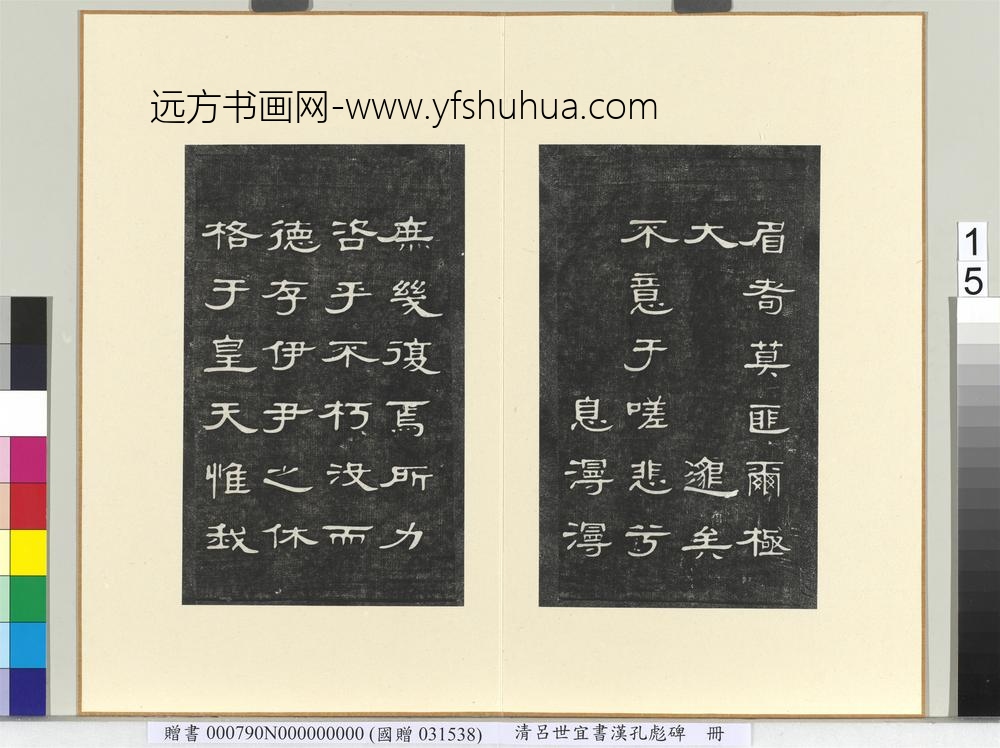 远方书画网-www.yfshuhua.com
眉耇莫匪爾極
大 𨓆矣
不意于嗟悲兮
息潯潯
庶幾復焉所力
咨乎不朽沒而
德存伊尹之休
格于皇天惟我
1
5
贈書000790N000000000 (國贈031538) 清呂世宜書漢孔彪碑 冊